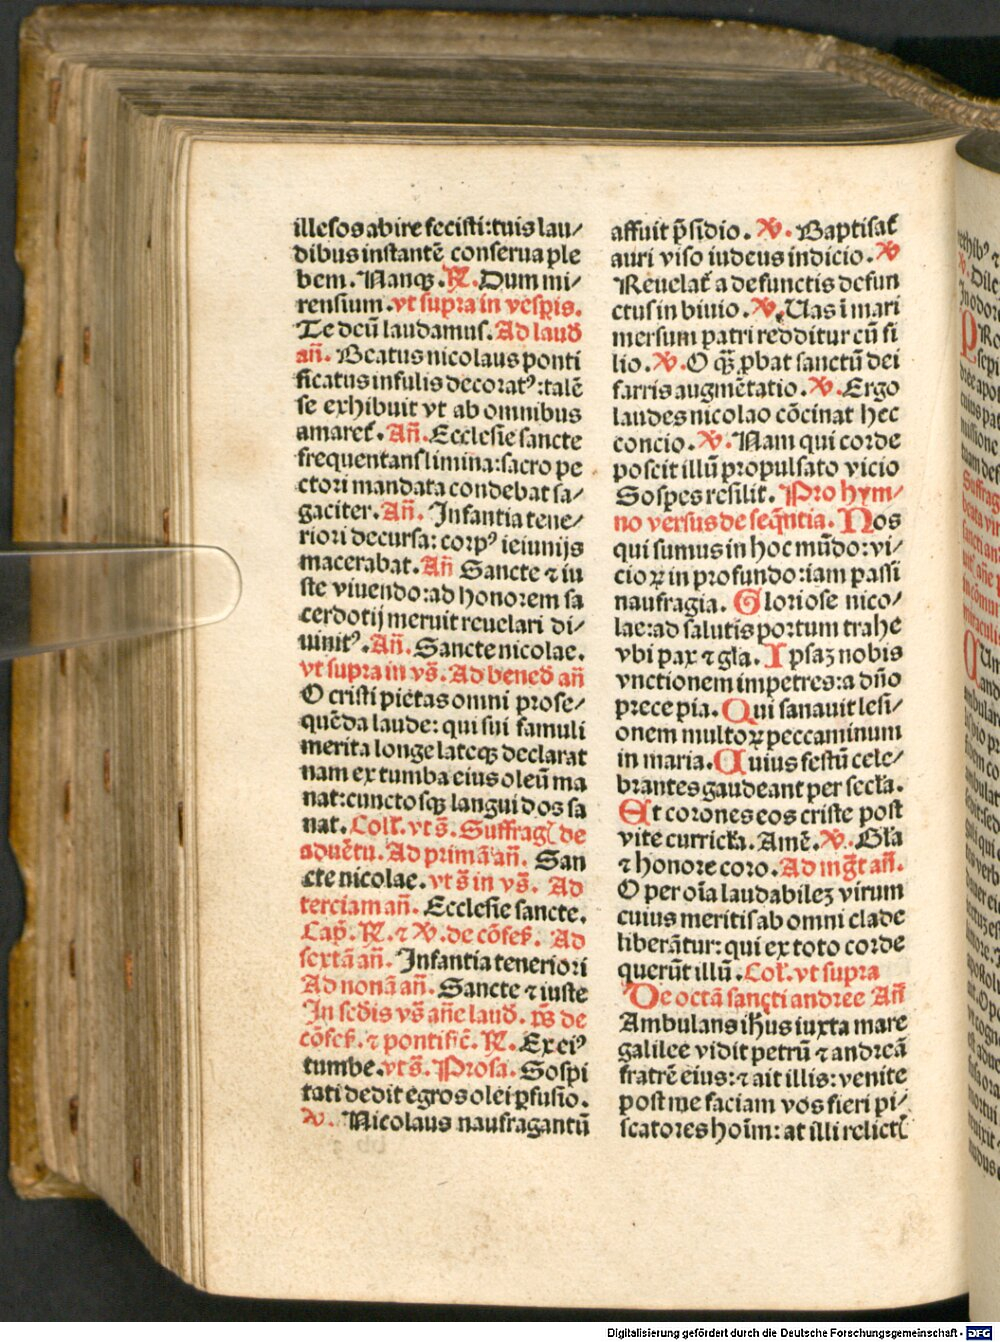 illesos abire fecisti: tuis lau⸗
dibus instantē conserua ple
bem. Nanqꝫ. ℟. Dum mi⸗
rensium. vt supra in vespis.
Te deū laudamus. Ad laud
añ. Beatus nicolaus ponti
ficatus infulis decoratꝰ: talē
se exhibuit vt ab omnibus
amaret᷑. Añ. Ecclesie sancte
frequentans limina: sacro pe
ctori mandata condebat sa⸗
gaciter. Añ. Infantia tene⸗
riori decursa: corpꝰ ieiunijs
macerabat. Añ Sancte ⁊ iu
ste viuendo: ad honorem sa
cerdotij meruit reuelari di⸗
uinitꝰ. Añ. Sancte nicolae.
vt supra in vs̄. Ad bened añ
O cristi pietas omni prose⸗
quēda laude: qui sui famuli
merita longe lateqꝫ declarat
nam ex tumba eius oleū ma
nat: cunctosqꝫ languidos sa
nat. Coll᷑. vt s̄. Suffragꝭ de
aduētu. Ad primā añ. San
cte nicolae. vt s̄ in vs̄. Ad
terciam añ. Ecclesie sancte.
Cap̄. ℟. ⁊ ℣. de cōfes. Ad
sextā añ. Infantia teneriori
Ad nonā añ. Sancte ⁊ iuste
In scdis vs̄ añe laud. p̄s de
cōfes. ⁊ pontific̄. ℟. Ex eiꝰ
tumbe. vt s̄. Prosa. Sospi
tati dedit egros olei ꝑfusio.
℣. Nicolaus naufragantū
affuit p̄sidio. ℣. Baptisat᷑
auri viso iudeus indicio. ℣
Reuelat᷑ a defunctis defun
ctus in biuio. ℣. Uas ī mari
mersum patri redditur cū fi
lio. ℣. O qꝫ̄ ꝓbat sanctū dei
farris augmētatio. ℣. Ergo
laudes nicolao cōcinat hec
concio. ℣. Nam qui corde
poscit illū propulsato vicio
Sospes resilit. Pro hym⸗
no versus de seq̄ntia. Nos
qui sumus in hoc mūdo: vi⸗
cioꝝ in profundo: iam passi
naufragia. Gloriose nico⸗
lae: ad salutis portum trahe
vbi pax ⁊ gl̄a. Ipsaꝫ nobis
vnctionem impetres: a dn̄o
prece pia. Qui sanauit lesi⸗
onem multoꝝ peccaminum
in maria. Cuius festū cele⸗
brantes gaudeant per secl̄a.
Et corones eos criste post
vite curricl̄a. Amē. ℣. Gl̄a
⁊ honore coro. Ad mg̅t añ.
O per oīa laudabileꝫ virum
cuius meritis ab omni clade
liberātur: qui ex toto corde
querūt illū. Col᷑. vt supra
De octā sancti andree Añ
Ambulans ih̄us iuxta mare
galilee vidit petrū ⁊ andreā
fratrē eius: ⁊ ait illis: venite
post me faciam vos fieri pi⸗
scatores hoīm: at illi relictꝭ